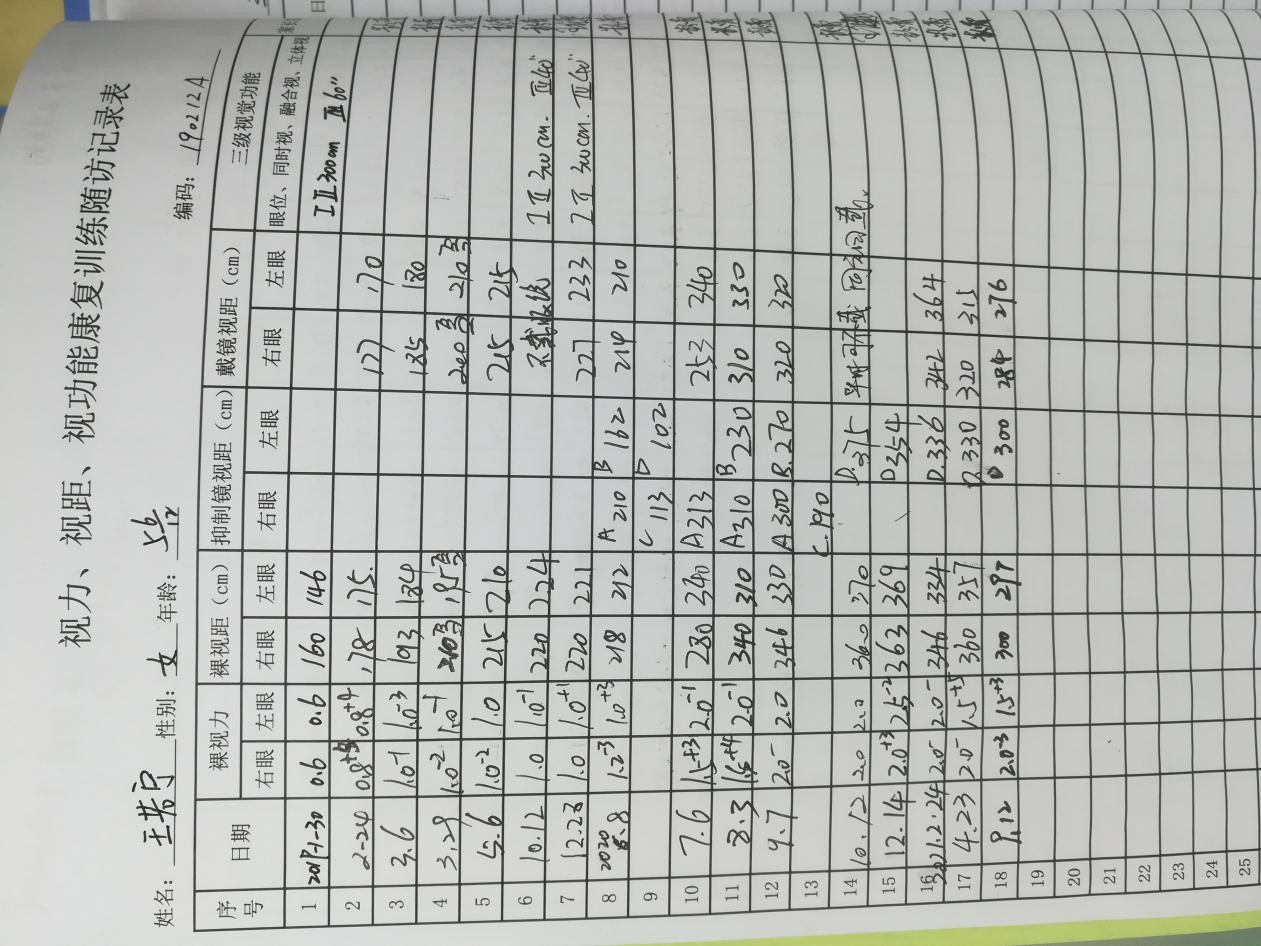 视力、视距、视功能康复训练随访记录表
编码：190212A
姓名：王若宁 性别：女 年龄：5 6/12
序号 日期 裸视力 裸视距（cm） 抑制镜视距（cm） 戴镜视距（cm） 三级视觉功能
右眼 左眼 右眼 左眼 右眼 左眼 右眼 左眼 眼位、同时视、融合视、立体视
1 2019-1-30 0.6 0.6 160 146 I II 300cm III 60"
2 2-24 0.8+4 0.8+4 178 175 177 170
3 3.6 1.0-1 1.0-3 193 184 185 180
4 3.29 1.0-2 1.0-1 210 195 200 210
5 5.6 1.0-2 1.0 215 210 215 215
6 10.12 1.0 1.0-1 220 224 I II 300cm. III 40"
7 12.28 1.0 1.0+1 220 221 227 233 I II 300cm. III 40"
8 2020 5.8 1.2-3 1.0+3 218 212 A 210 B 162 214 210
9 C 113 D 102
10 7.6 1.5+3 2.0-1 280 240 A313 253 340
11 8.3 1.5+4 2.0-1 340 310 A310 B 230 310 330
12 9.7 2.0- 2.0 346 330 A300 B.270 320 320
13 C.190
14 10.12 2.0 2.0 360 370 D.375 平时可不戴
15 12.14 2.0+3 2.5-2 363 369 D354
16 2021.2.24 2.0- 2.0- 346 334 D.336 342 364
17 4.23 2.0- 1.5+5 360 357 D.330 320 315
18 9.12 2.0-3 1.5+3 300 297 D 300 284 276
19
20
21
22
23
24
25